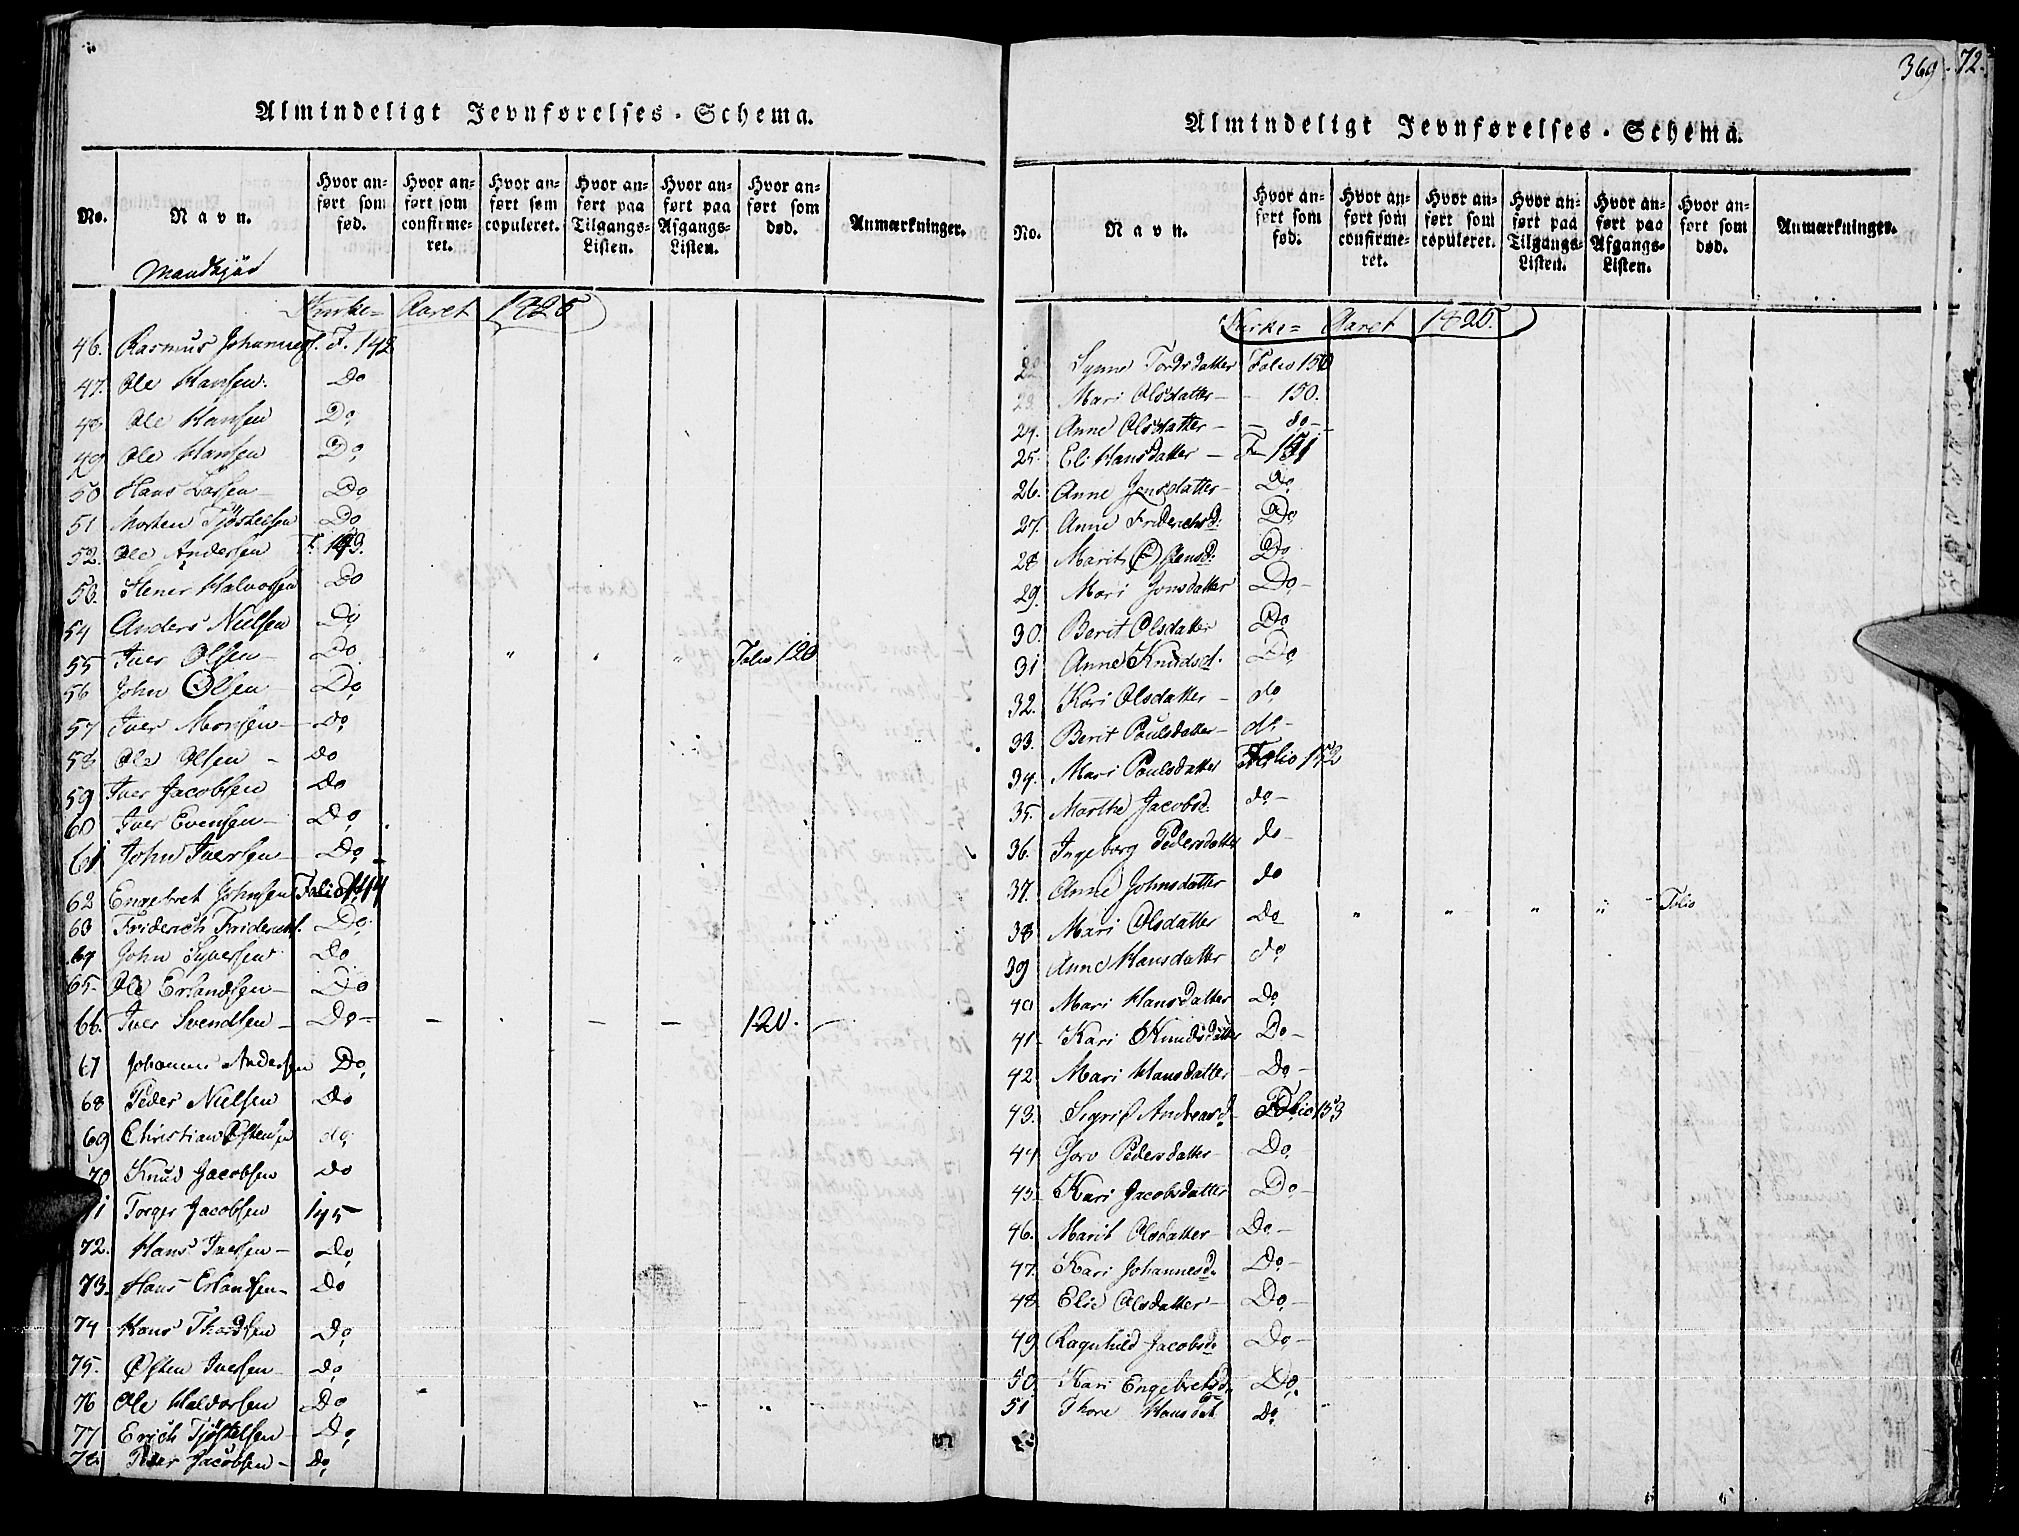 369
72.
Almindeligt Jevnførelses-Schema.
No.
Navn.
Hvor anført som fød.
Hvor anført som confirmeret.
Hvor anført som copuleret.
Hvor anført paa Tilgangs-Listen.
Hvor anført paa Afgangs-Listen.
Hvor anført som død.
Anmærkninger.
Mandkjøn
Kirke= Aaret 1825
46. Rasmus Johannesf. F. 142
47. Ole Hansen. Do
48 Ole Hansen Do
49 Ole Hansen Do
50 Hans Larsen - Do
51 Morten Tjøstelsen Do
52. Ole Andersen F. 143.
53. Stener Halvorsen Do
54 Anders Nielsen Do
55 Iver Olsen - Do " " " " Folio 120
56 John Olsen Do
57 Iver Monsen - Do
58 Ole Olsen - Do
59 Iver Jacobsen Do
60 Iver Evensen - Do
61 John Iversen - Do
62 Engebret Johnsen Folio 144
63 Friderich Friderichs. Do
64 John Syversen Do
65- Ole Erlandsen - Do
66. Iver Svendsen - Do - 120.
67 Johannes Andersen Do
68 Peder Nielsen Do
69 Christian Østensen do
70 Knud Jacobsen Do
71 Torger Jacobsen 145
72. Hans Iversen - Do
73. Hans Erlandsen - Do
74 Hans Thordsen Do
75- Østen Iversen Do
76 Ole Halvorsen Do
77 Erich Tjøstelsen - Do
78. Peder Jacobsen - Do
Almindeligt Jevnførelses-Schema.
No.
Navn.
Hvor anført som fød.
Hvor anført som confirmeret.
Hvor anført som copuleret.
Hvor anført paa Tilgangs-Listen.
Hvor anført paa Afgangs-Listen.
Hvor anført som død.
Anmærkninger.
Kirke= Aaret 1825.
22 Synne Tordsdatter Folio 150
23. Mari Olsdatter - - 150.
24. Anne Olsdatter - - do -
25. Eli Hansdatter - F 151
26. Anne Jensdatter - Do
27. Anne Friderichsd: Do
28 Marit Østensd. Do
29. Mari Jonsdatter Do -
30. Berit Olsdatter Do
31 Anne Knudsd. Do
32. Kari Olsdatter - do
33. Berit Paulsdatter - do -
34. Mari Paulsdatter Folio 152
35. Marthe Jacobsd. do -
36. Ingeborg Pedersdatter do -
37. Anne Johnsdatter do
38 Mari Olsdatter Do " " " " - Folio
39 Anne Hansdatter do
40 Mari Hansdatter Do
41- Kari Knudsdatter Do -
42. Mari Hansdatter - Do -
43. Sigrid Andreasd. Folio 153
44 Goro Pedersdatter - Do
45. Kari Jacobsdatter Do -
46. Marit Olsdatter - Do -
47. Kari Johannesd. Do -
48. Elie Olsdatter - Do -
49. Ragnhild Jacobsd. Do -
50. Kari Engebretsd. Do.
51 Thore Hansdat. Do